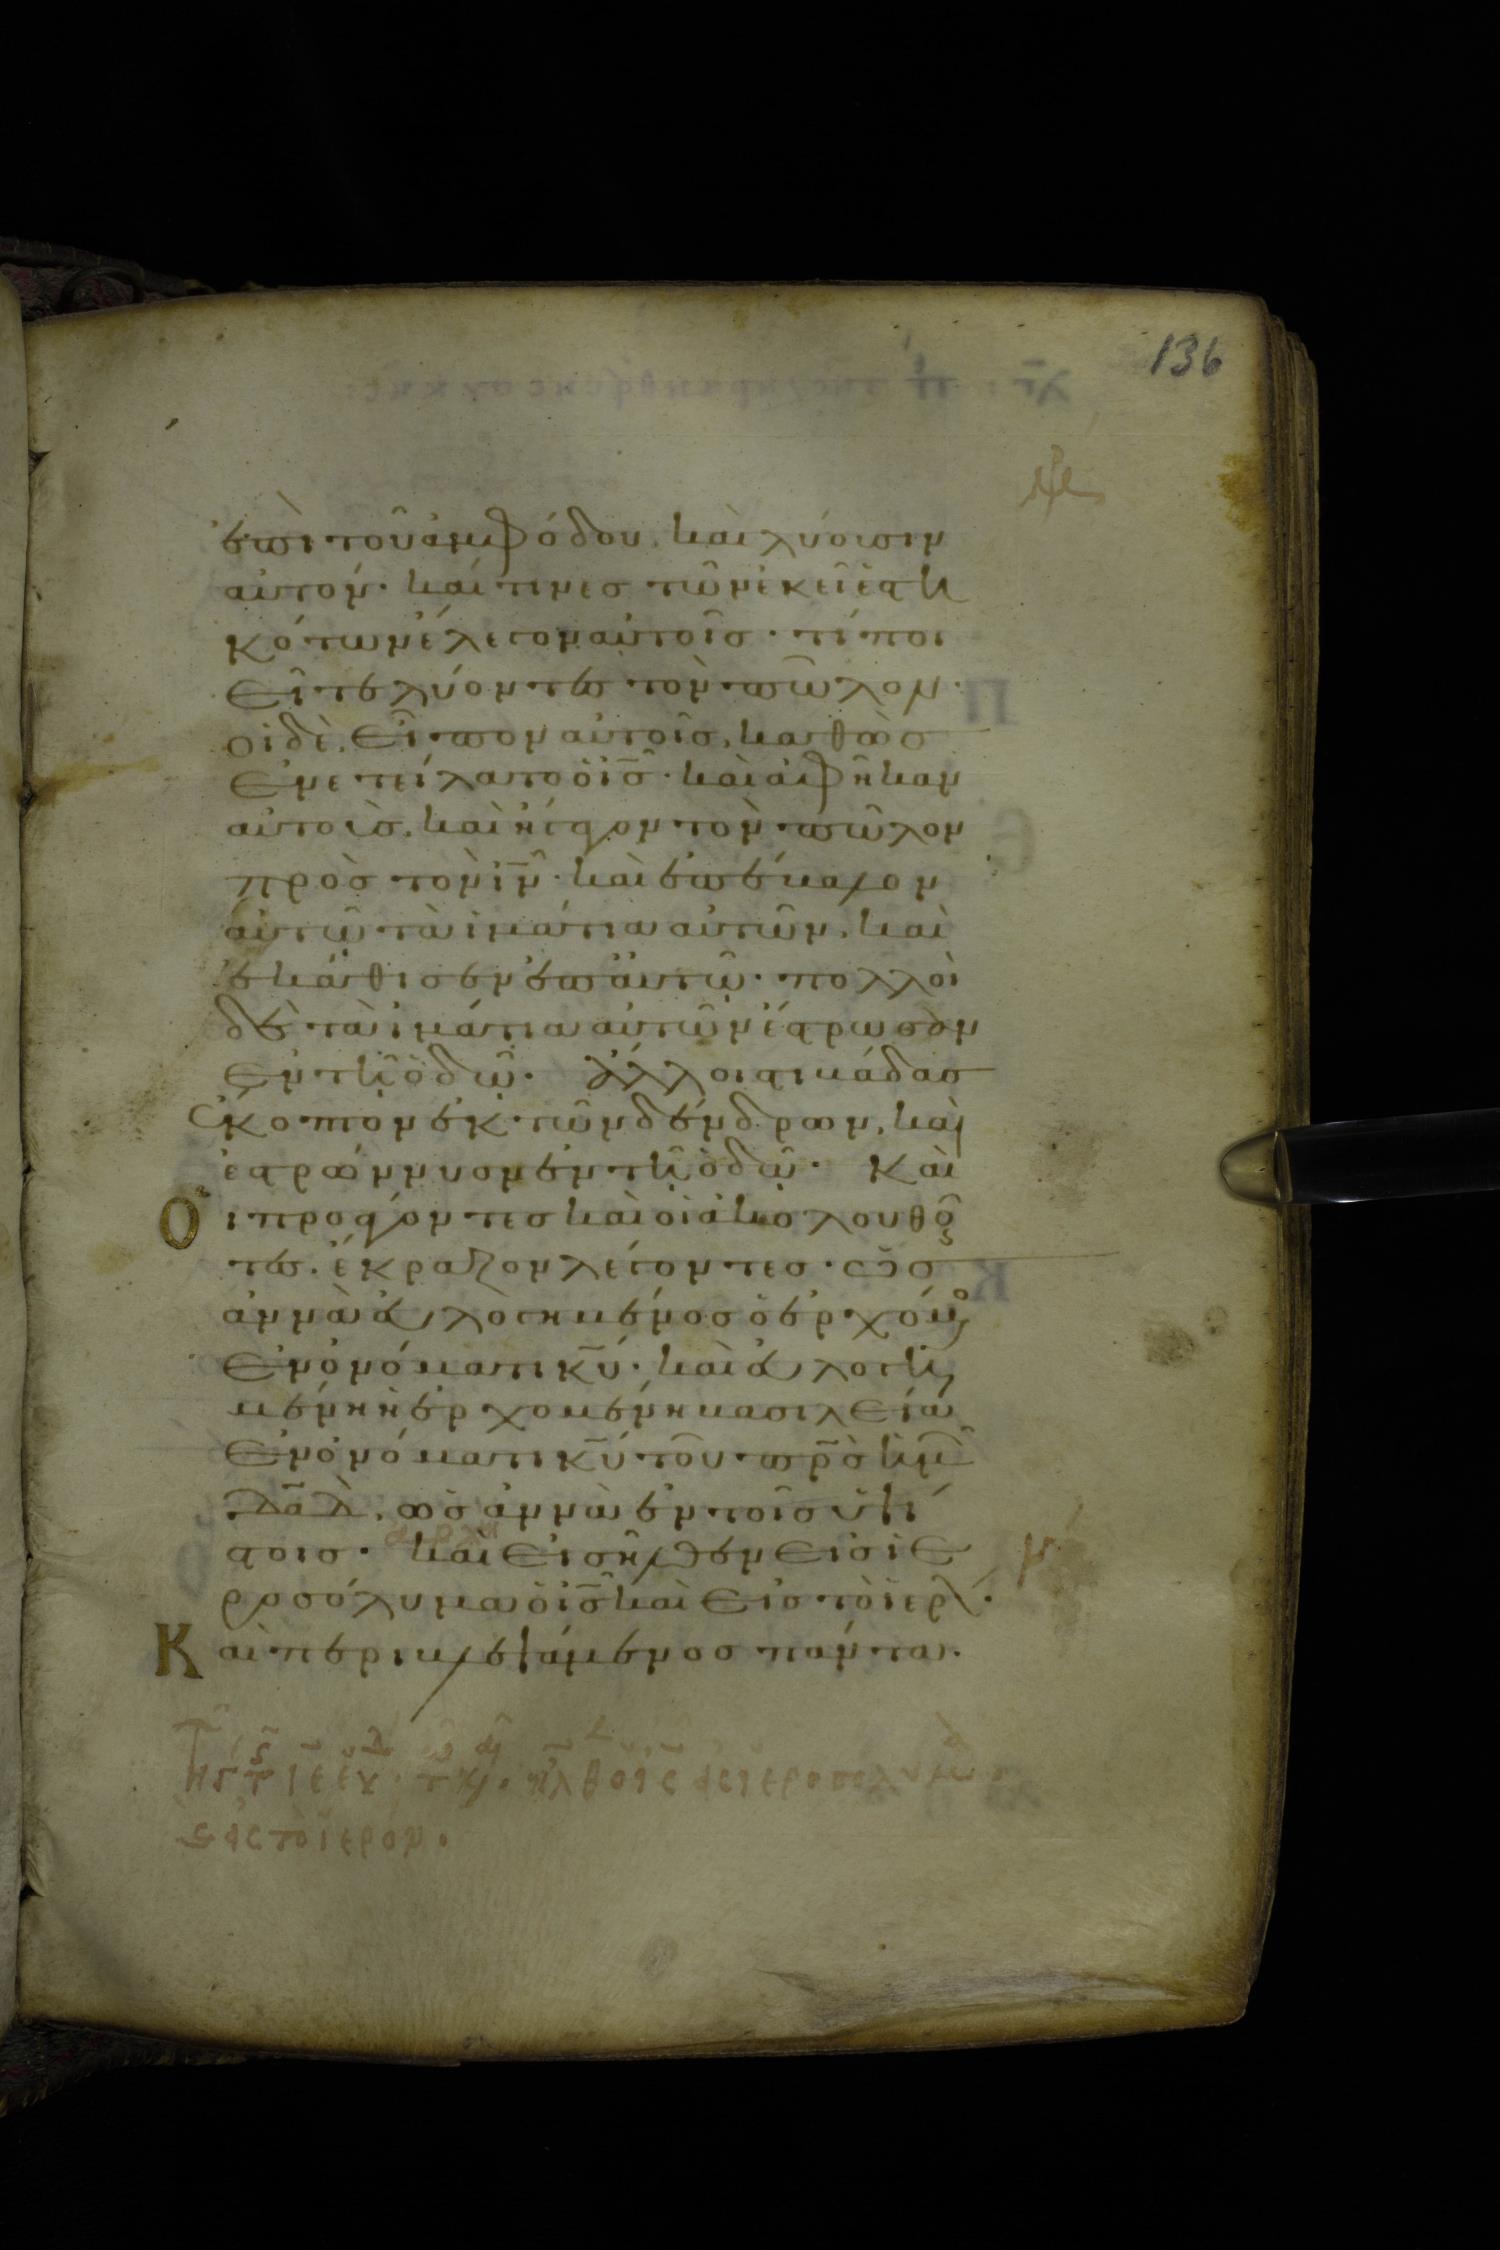 136
ἐπὶ τοῦ ἀμφόδου, καὶ λύουσιν
αὐτόν· καί τινες τῶν ἐκεῖ ἑστη
κότων ἔλεγον αὐτοῖς· τί ποι
εῖτε λύοντες τὸν πῶλον·
οἱ δὲ, εἶπον αὐτοῖς, καθὼς
ἐνετείλατο ὁ ις̅· καὶ ἀφῆκαν
αὐτοὺς, καὶ ἤγαγον τὸν πῶλον
πρὸς τὸν ιν̅· καὶ ἐπέβαλον
αὐτῶ τὰ ἱμάτια αὐτῶν, καὶ
ἐκάθισεν ἐπ' αὐτῶ· πολλοὶ
δὲ τὰ ἱμάτια αὐτῶν ἔστρωσαν
ἐν τῆ ὁδῶ· ἄλλοι στιβάδας
ἔκοπτον ἐκ τῶν δένδρων, καὶ
ἐστρώννυον ἐν τῆ ὁδῶ· Καὶ
οἱ προάγοντες καὶ οἱ ἀκολουθοῦν
τες, ἔκραζον λέγοντες· ὡσ
αννὰ εὐλογημένος ὁ ἐρχόμενος
ἐν ὀνόματι κυ̅· καὶ εὐλογη
μένη ἡ ἐρχομένη βασιλεία
ἐν ὀνόματι κυ̅ τοῦ πρ̅ς ἡμῶν
δα̅δ, ὡσαννὰ ἐν τοῖς ὑψί
στοις· καὶ εἰσῆλθεν εἰς ἱε
ροσόλυμα ὁ ις̅ καὶ εἰς τὸ ἱερόν·
Καὶ περιβλεψάμενος πάντα·
ἦλθεν ὁ ις̅ εἰς ἱεροσόλυμα
καὶ εἰς τὸ ἱερόν·